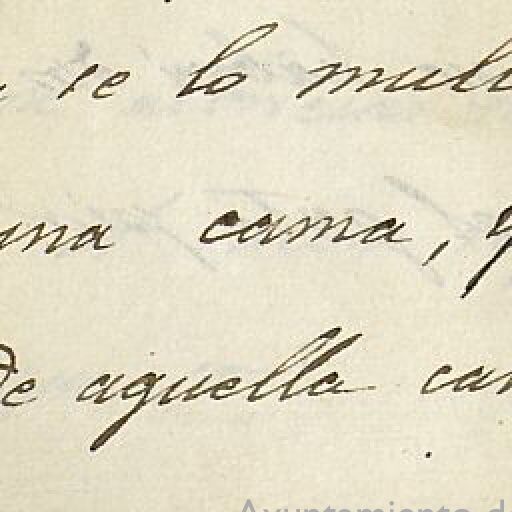 se lo mul
una cama,
de aquella ca
Ayuntamiento d